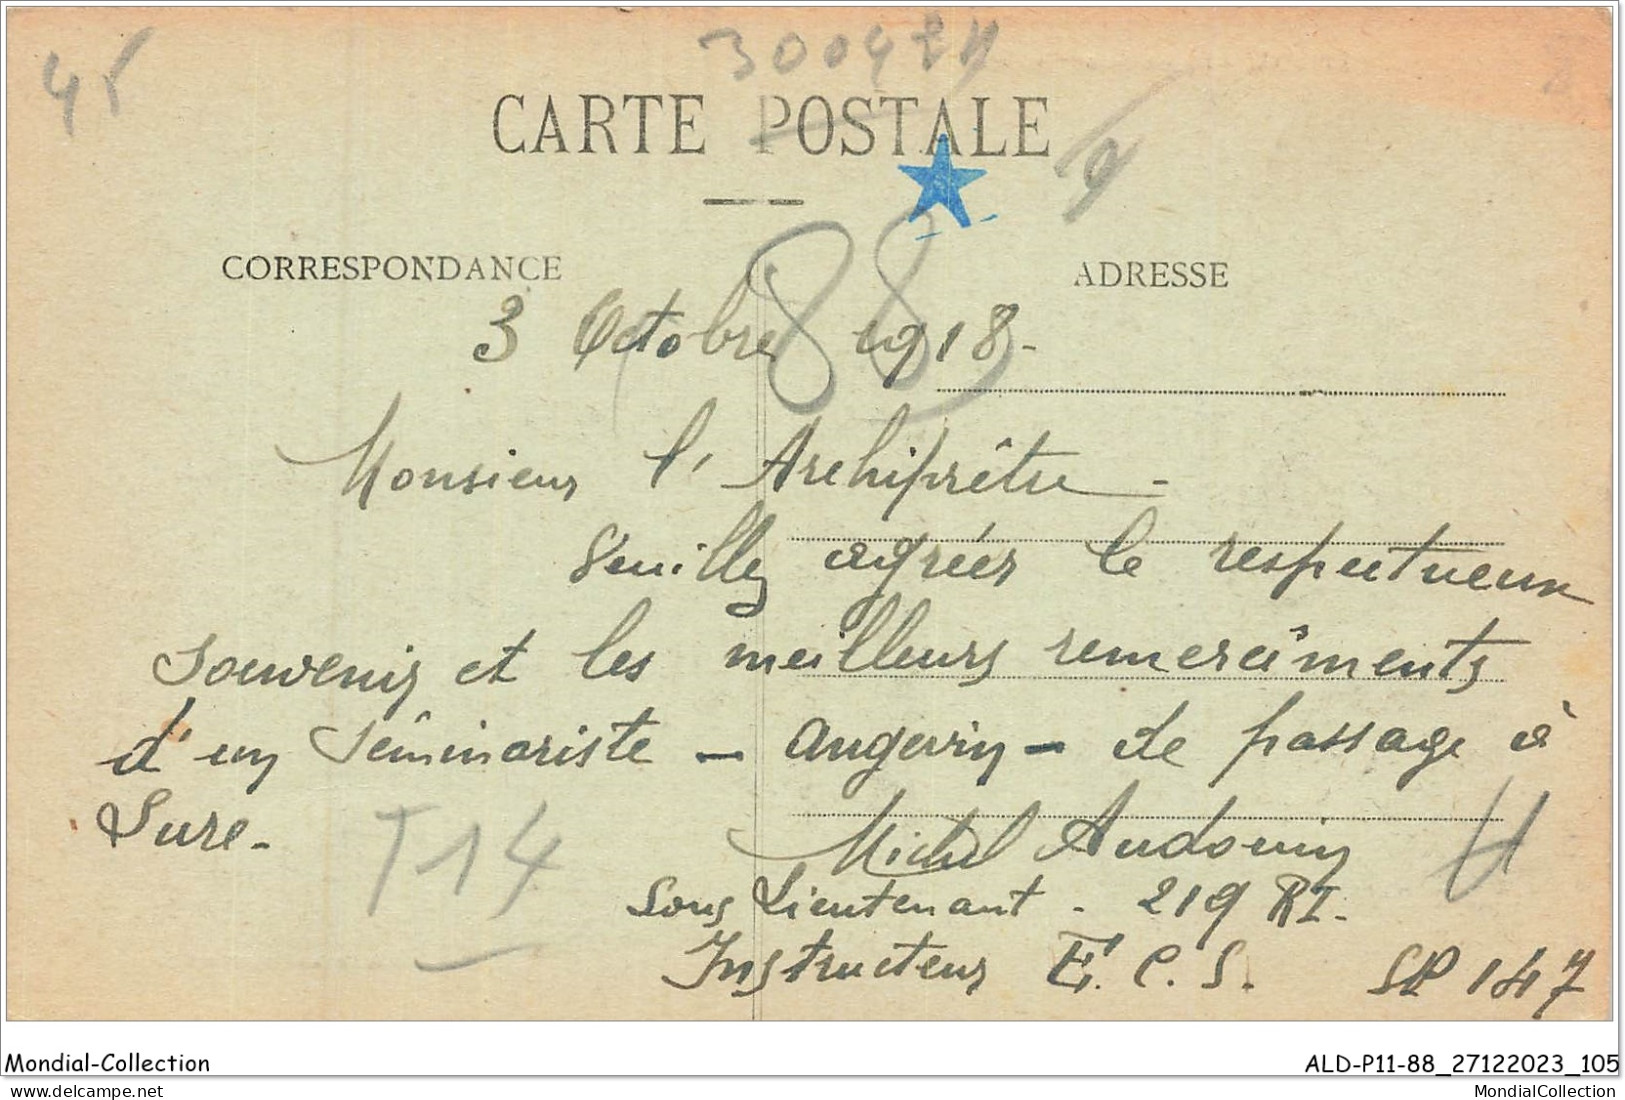 45
300484
CARTE POSTALE
CORRESPONDANCE
ADRESSE
88
3 Octobre 1918-
Monsieur l'Archiprêtre-
Veuillez agréer le respectueux
souvenir et les meilleurs remercîments
d'un Séminariste - angevin - de passage à
Lure-
T14
Michel Audouin
Sous Lieutenant - 219 RI-
Instructeur E. C. S. SP 147
Mondial-Collection
ALD-P11-88_27122023_105
MondialCollection